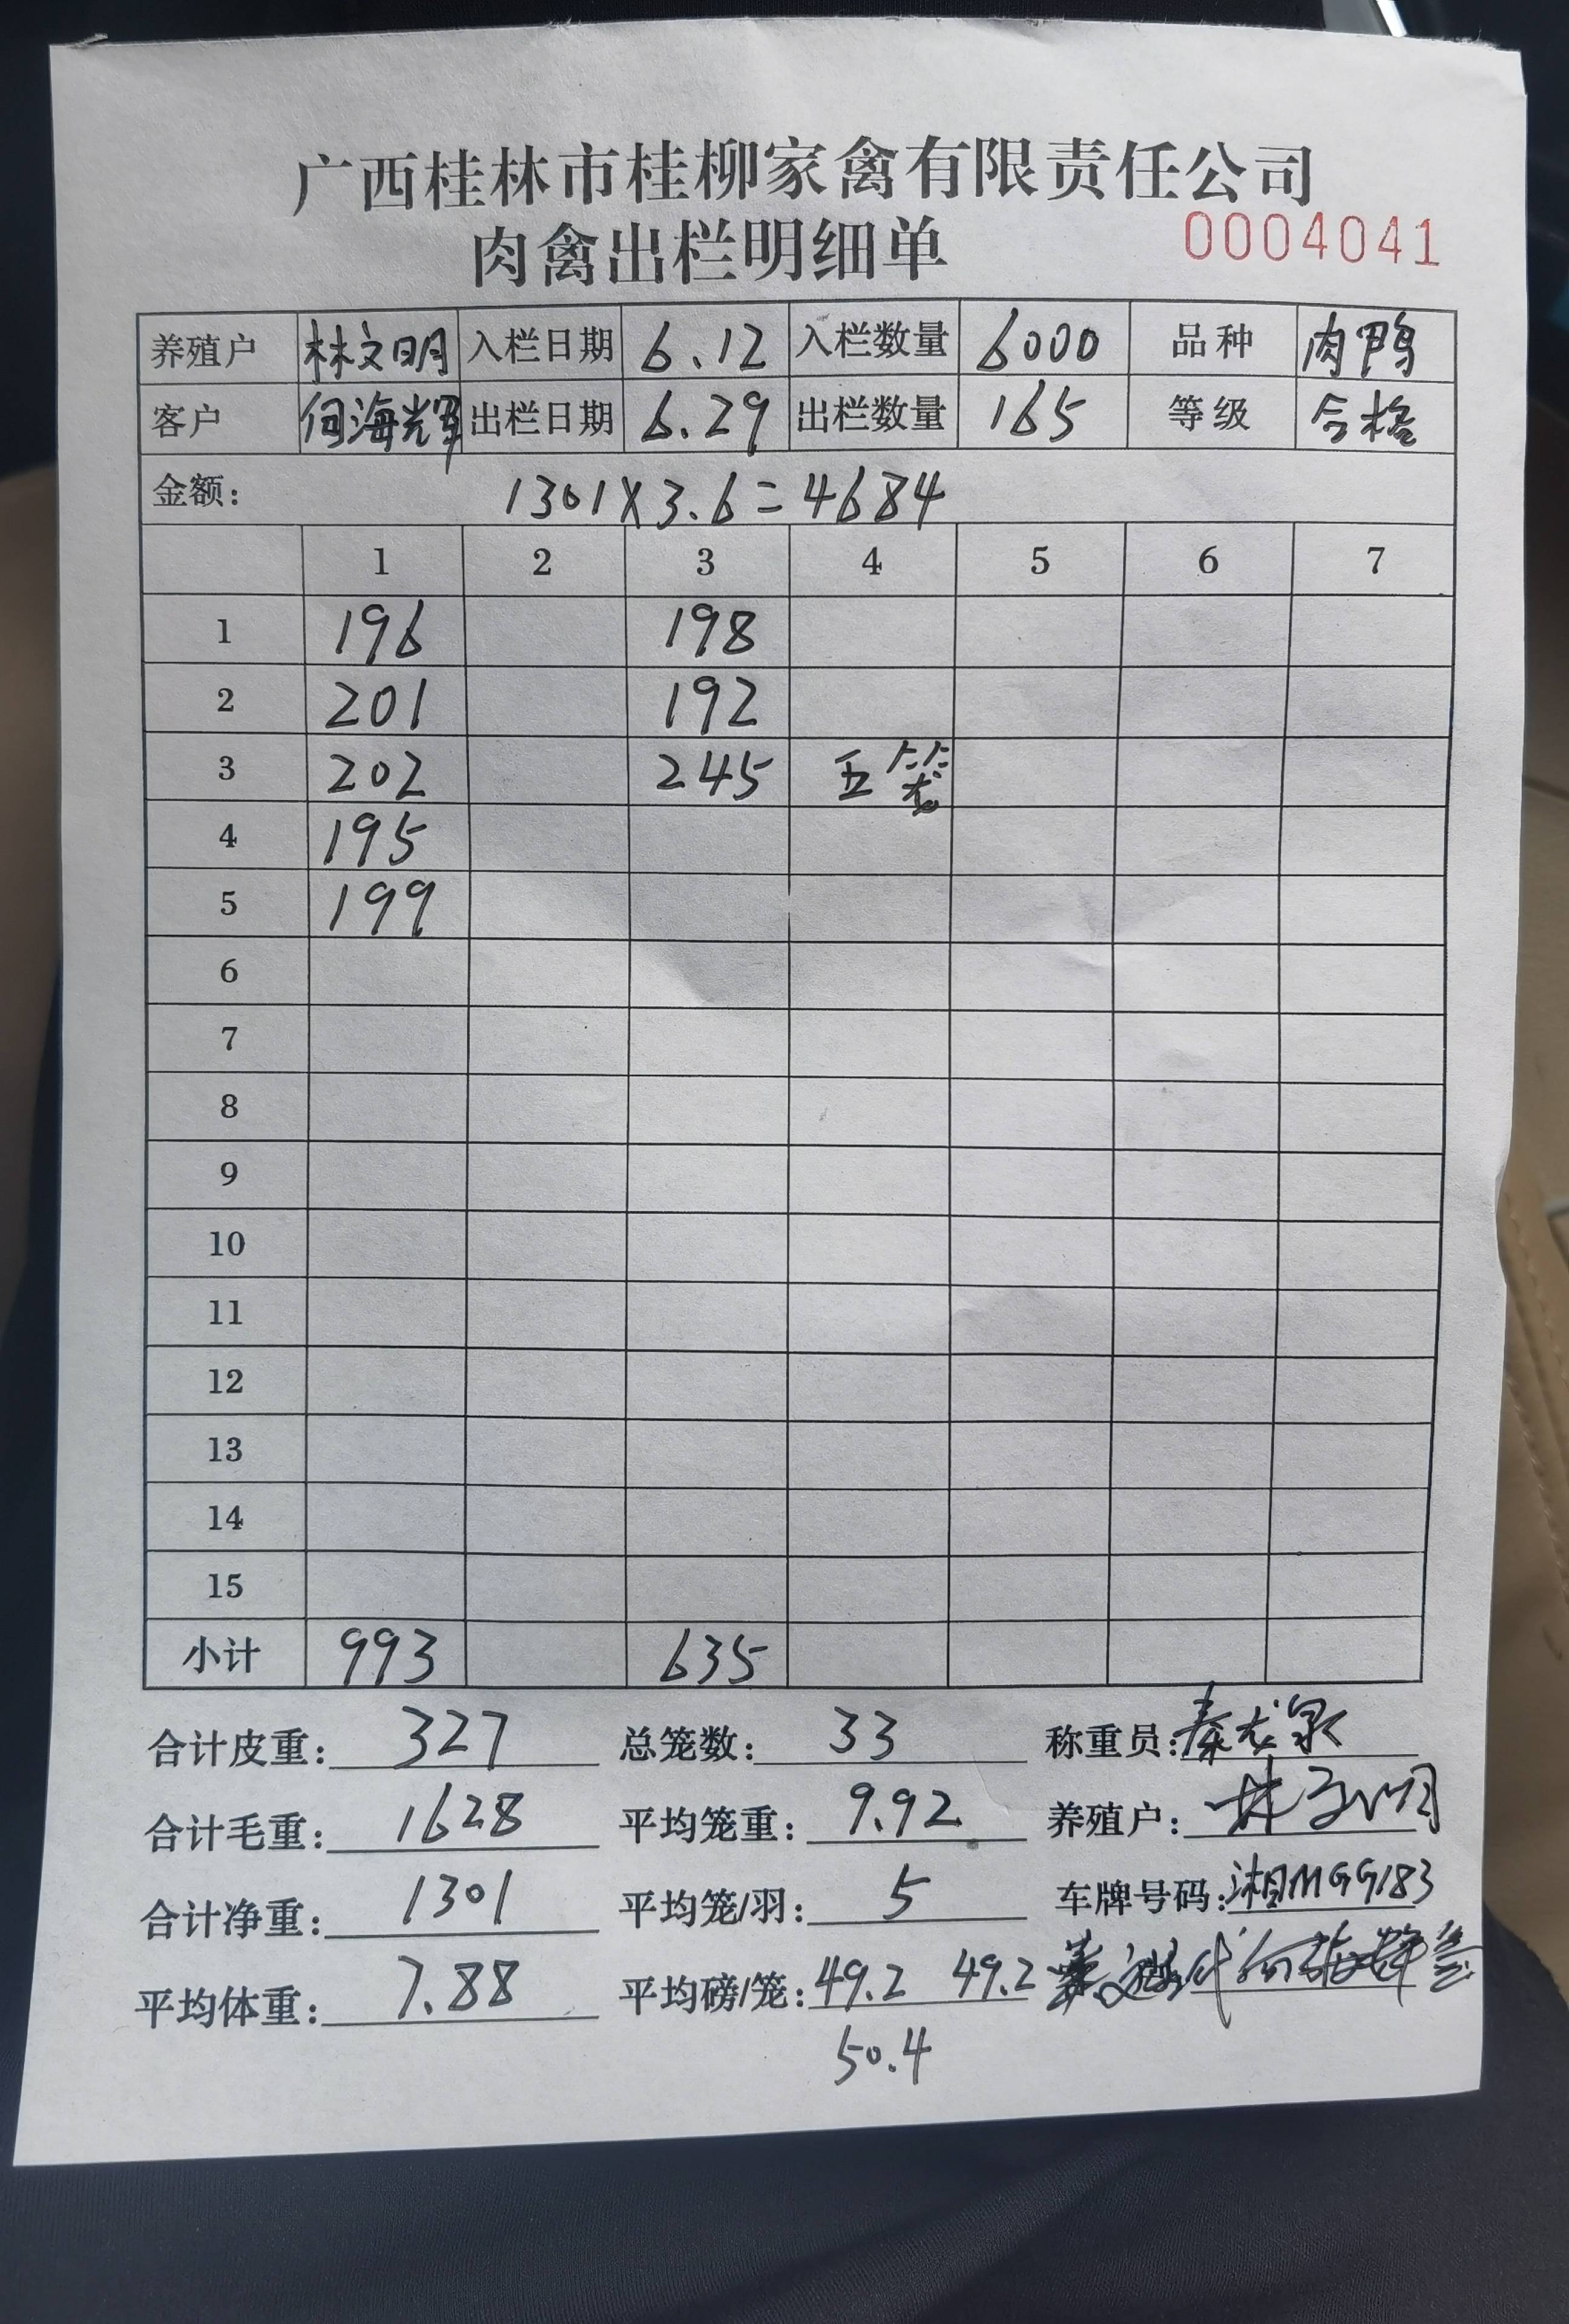 广西桂林市桂柳家禽有限责任公司
肉禽出栏明细单 0004041
养殖户 林文明 入栏日期 6.12 入栏数量 6000 品种 肉鸭
客户 何海辉 出栏日期 6.29 出栏数量 165 等级 合格
金额: 1301X3.6=4684
1 2 3 4 5 6 7
1 196 198
2 201 192
3 202 245 五笼
4 195
5 199
6
7
8
9
10
11
12
13
14
15
小计 993 635
合计皮重: 327 总笼数: 33 称重员: 秦龙泉
合计毛重: 1628 平均笼重: 9.92 养殖户: 林文明
合计净重: 1301 平均笼/羽: 5 车牌号码: 湘MGG183
平均体重: 7.88 平均磅/笼: 49.2 49.2 代何海辉签
50.4